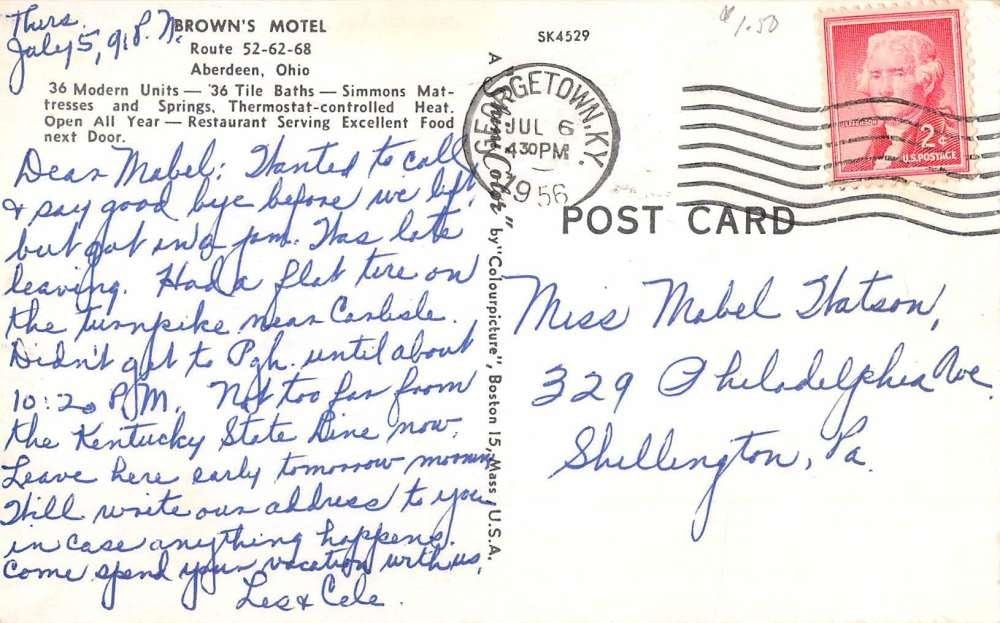 Thurs.
July 5, 9 P.M.
BROWN'S MOTEL
Route 52-62-68
Aberdeen, Ohio
36 Modern Units — 36 Tile Baths — Simmons Mat-
tresses and Springs, Thermostat-controlled Heat.
Open All Year — Restaurant Serving Excellent Food
next Door.
Dear Mabel: Wanted to call
& say good bye before we left,
but got in a jam. Was late
leaving. Had a flat tire on
the turnpike near Carlisle.
Didn't get to Pgh. until about
10:20 P.M. Not too far from
the Kentucky State Line now.
Leave here early tomorrow morning
Will write our address to you
in case anything happens.
Come spend your vacation with us.
Les & Cele.
A "Shini-Color" by "Colourpicture", Boston 15, Mass, U.S.A.
SK4529
$1.50
GEORGETOWN, KY.
JUL 6
4 30 PM
1956
JEFFERSON
2¢
U.S. POSTAGE
POST CARD
Miss Mabel Watson,
329 Philadelphia Ave.
Shillington, Pa.